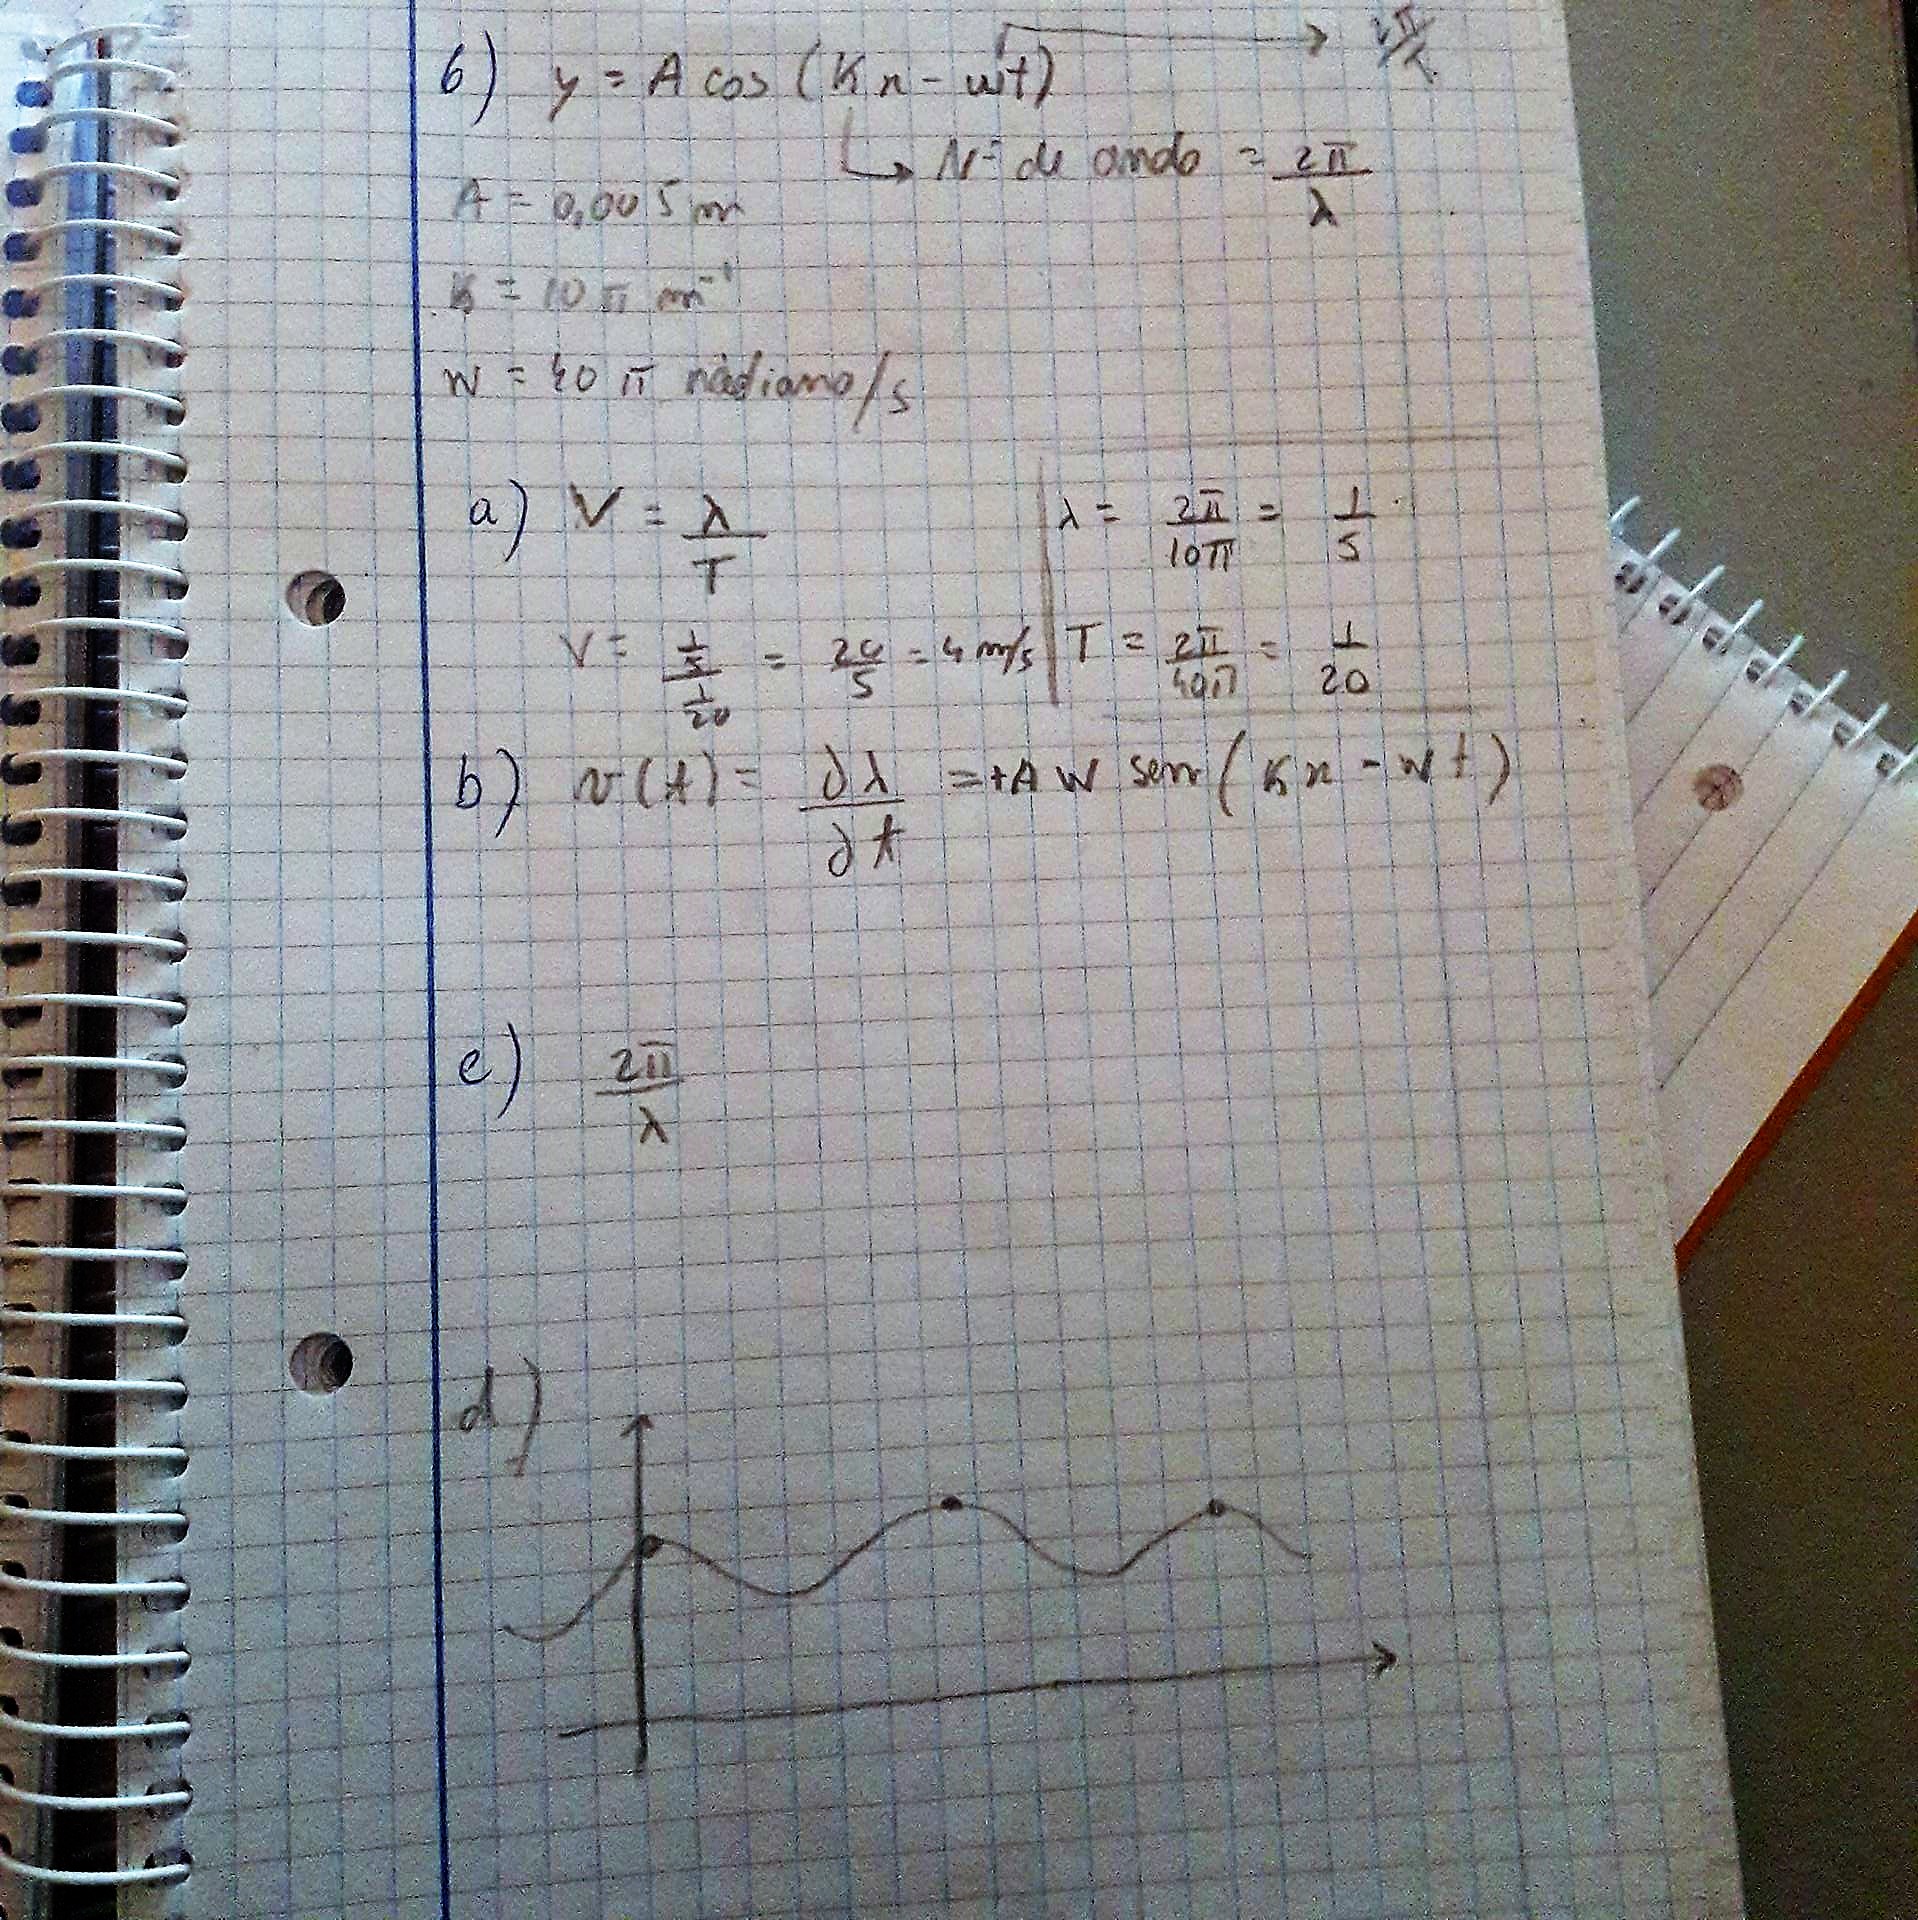 6) y = A cos (Kx - wt) → 2π/T
↳ Nº de onda = 2π/λ
A = 0,005 m
K = 10 π m⁻¹
W = 40 π radiano/s
a) V = λ/T
λ = 2π/10π = 1/5
V = (1/5)/(1/20) = 20/5 = 4 m/s
T = 2π/40π = 1/20
b) v(t) = ∂λ/∂t = +A W sen (Kx - wt)
c) 2π/λ
d)